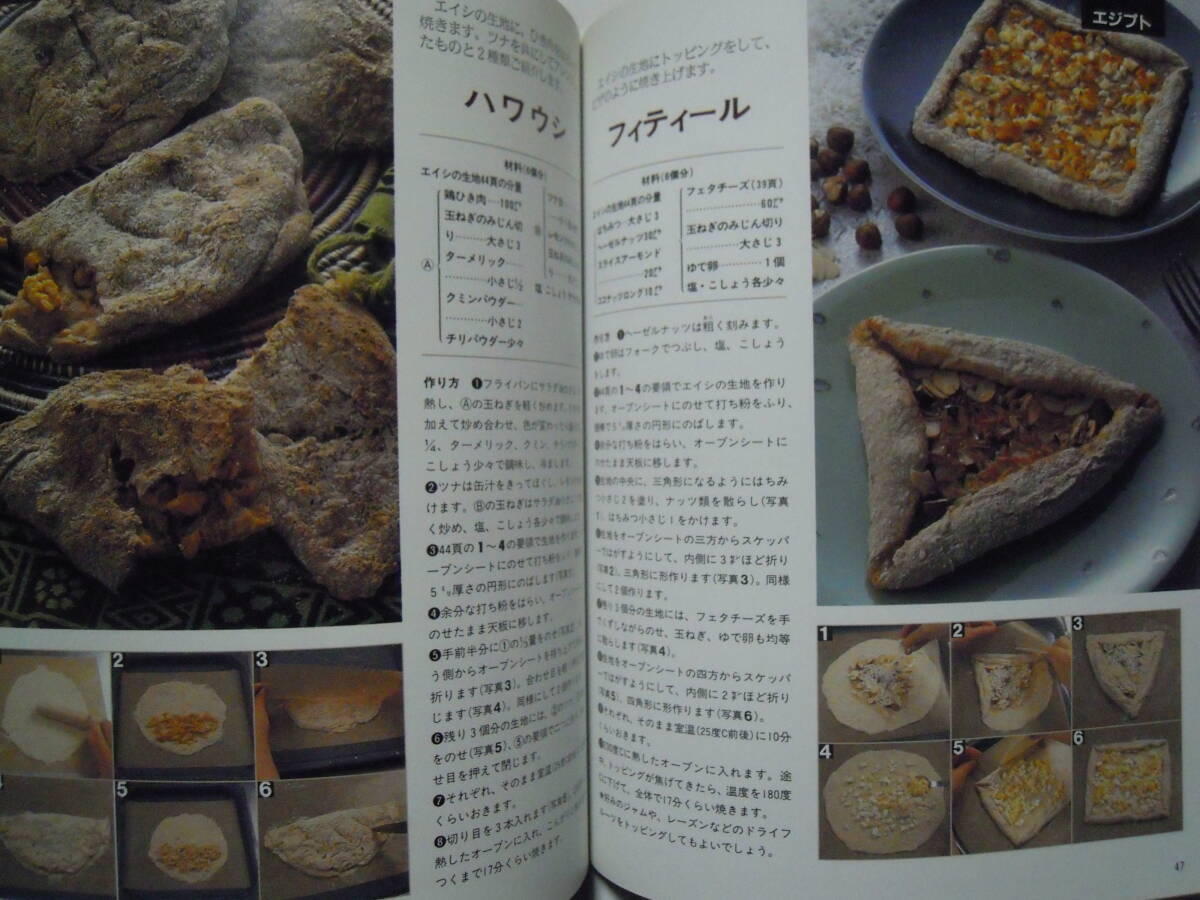 エイシの生地に、ひき肉
焼きます。ツナを具にしてアレン
たものと2種類ご紹介します。
ハワウシ
材料(6個分)
エイシの生地44頁の分量
鶏ひき肉……100㌘
玉ねぎのみじん切
り………大さじ3
ターメリック……
………小さじ½
クミンパウダー……
………小さじ2
チリパウダー少々
Ⓐ
作り方 ❶フライパンにサラダ油
熱し、Ⓐの玉ねぎを軽く炒めます。
加えて炒め合わせ、色が変わって
¼、ターメリック、クミン、チリ
こしょう少々で調味し、冷まします。
❷ツナは缶汁をきってほぐし、レモン
けます。Ⓑの玉ねぎはサラダ油
く炒め、塩、こしょう各少々で調味し
❸44頁の1～4の要領で生地を作り
ーブンシートにのせて打ち粉をふり、
5㍉厚さの円形にのばします(写真
❹余分な打ち粉をはらい、オーブン
のせたまま天板に移します。
❺手前半分に①の⅓量をのせ(写真2)、
う側からオーブンシートを持ち上げ
折ります(写真3)。合わせ目を軽く
じます(写真4)。同様にして2個作
❻残り3個分の生地には、②の
をのせ(写真5)、⑤の要領で二つに
せ目を押えて閉じます。
❼それぞれ、そのまま室温(25度C前後
くらいおきます。
❽切り目を3本入れます(写真6)。
熱したオーブンに入れ、こんがり
つくまで17分くらい焼きます。
1
2
3
4
5
6
エジプト
エイシの生地にトッピングをして、
ピザのように焼き上げます。
フィティール
材料(6個分)
エイシの生地44頁の分量
はちみつ…大さじ3
ヘーゼルナッツ30㌘
スライスアーモンド
………20㌘
ココナッツロング10㌘
フェタチーズ(39頁)
………60㌘
玉ねぎのみじん切り
………大さじ3
ゆで卵………1個
塩・こしょう各少々
作り方 ❶ヘーゼルナッツは粗く刻みます。
ゆで卵はフォークでつぶし、塩、こしょう
をします。
44頁の1～4の要領でエイシの生地を作り
ます。オーブンシートにのせて打ち粉をふり、
麺棒で5㍉厚さの円形にのばします。
余分な打ち粉をはらい、オーブンシートに
のせたまま天板に移します。
生地の中央に、三角形になるようにはちみ
つ小さじ2を塗り、ナッツ類を散らし(写真
1)、はちみつ小さじ1をかけます。
生地をオーブンシートの三方からスケッパ
ーではがすようにして、内側に3㌢ほど折り
(写真2)、三角形に形作ります(写真3)。同様
にして2個作ります。
残り3個分の生地には、フェタチーズを手
でくずしながらのせ、玉ねぎ、ゆで卵も均等
に散らします(写真4)。
生地をオーブンシートの四方からスケッパ
ーではがすようにして、内側に2㌢ほど折り
(写真5)、四角形に形作ります(写真6)。
それぞれ、そのまま室温(25度C前後)に10分
くらいおきます。
230度Cに熱したオーブンに入れます。途
中、トッピングが焦げてきたら、温度を180度
Cに下げて、全体で17分くらい焼きます。
★好みのジャムや、レーズンなどのドライフ
ルーツをトッピングしてもよいでしょう。
1
2
3
4
5
6
47